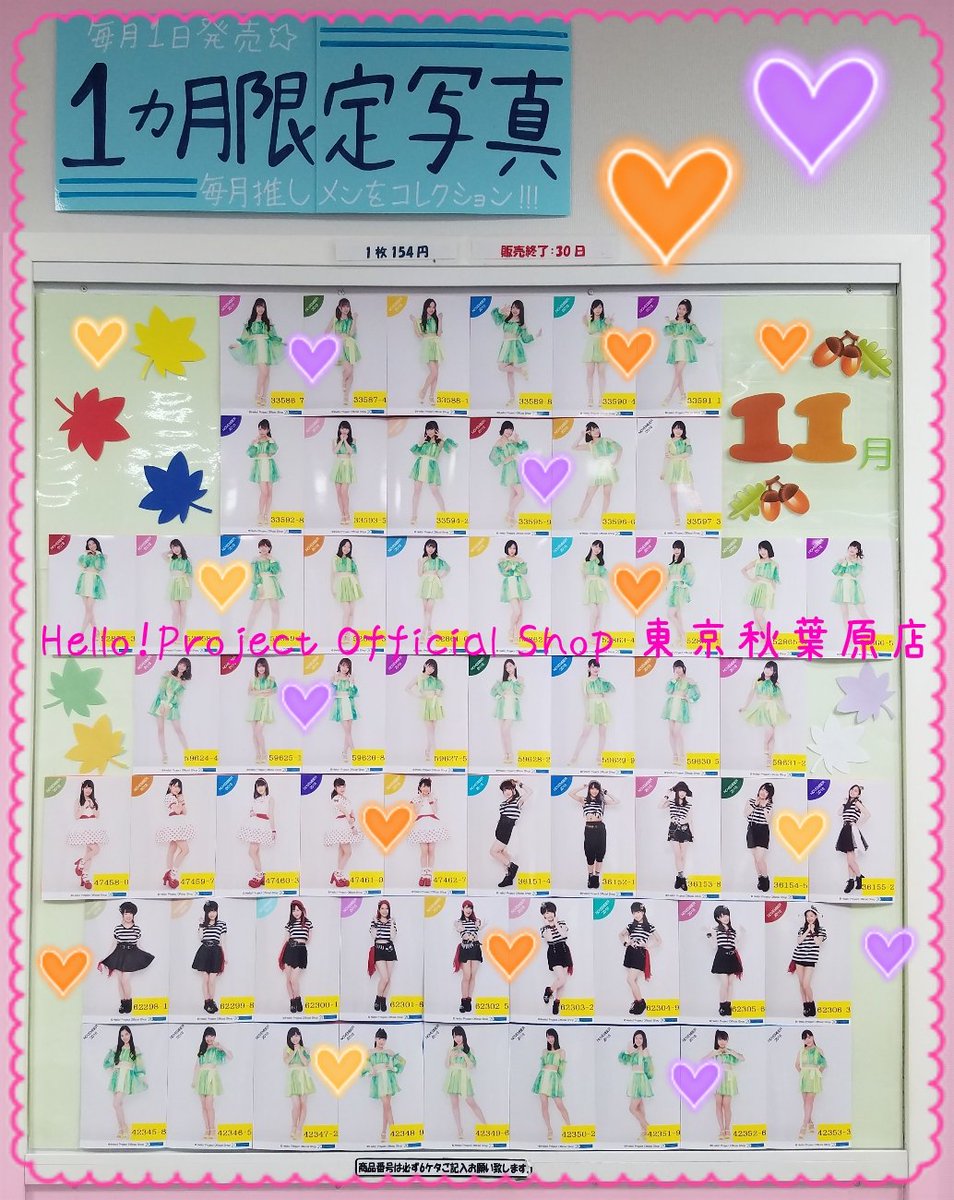 毎月1日発売☆
1ヵ月限定写真
毎月推しメンをコレクション!!!
1枚154円
販売終了:30日
33586-7 33587-4 33588-1 33589-8 33590-4 33591-1
11月
33592-8 33593-5 33594-2 33595-9 33596-6 33597-3
Hello!Project Official Shop 東京秋葉原店
59624-4 59625-1 59626-8 59627-5 59628-2 59629-9 59630-5 59631-2
47458-0 47459-7 47460-3 47461-0 47462-7 36151-4 36152-1 36153-8 36154-5 36155-2
62298-1 62299-8 62300-1 62301-8 62302-5 62303-2 62304-9 62305-6 62306-3
42345-8 42346-5 42347-2 42348-9 42349-6 42350-2 42351-9 42352-6 42353-3
商品番号は必ず6ケタご記入お願い致します。